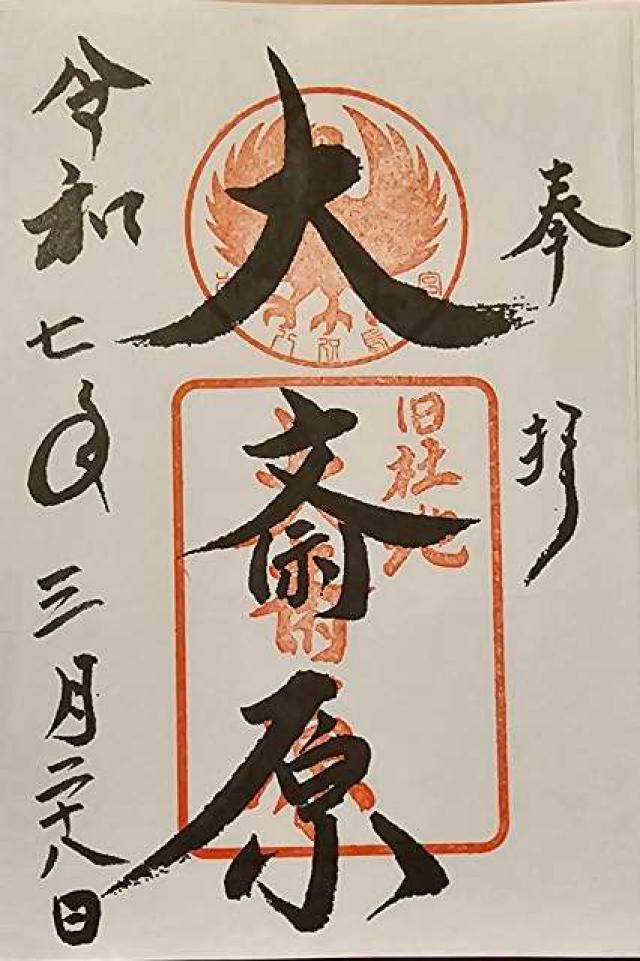 奉拝
旧社地
大斎原
大斎原
令和七年三月二十八日